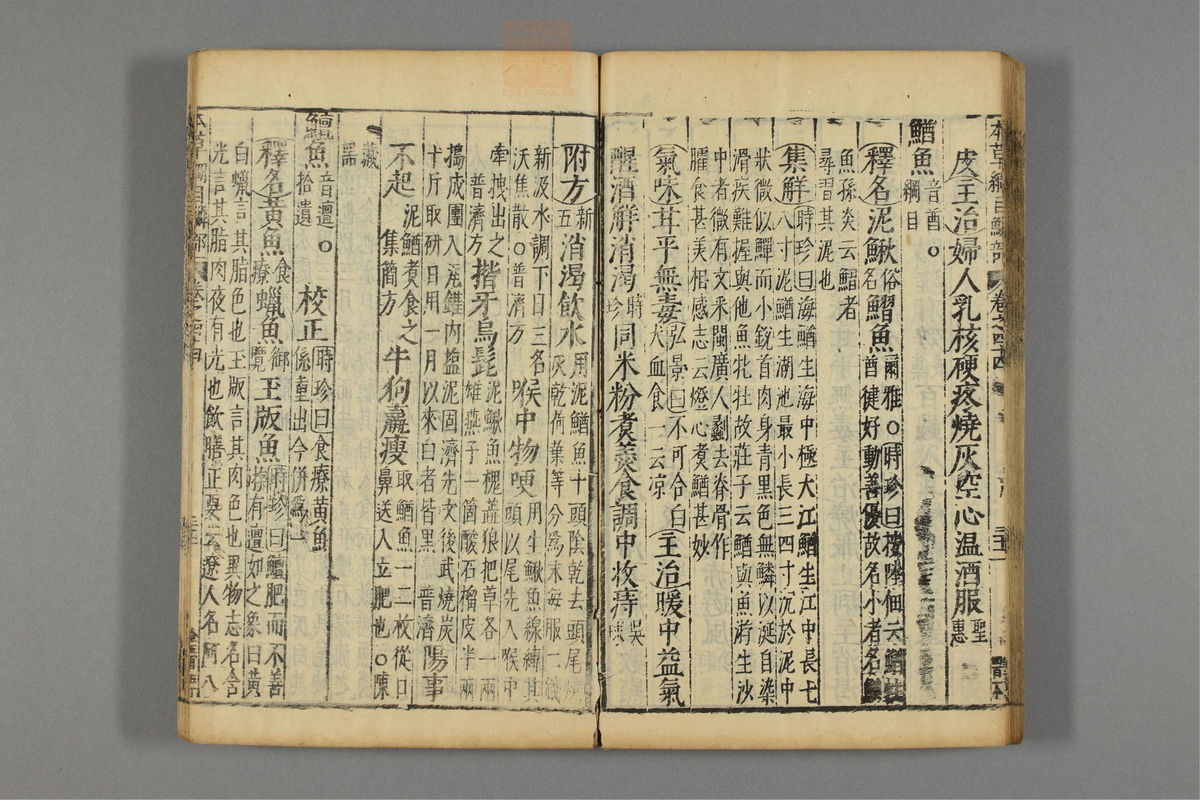 本草綱目鱗部 卷之四十四
皮主治婦人乳核硬疼燒灰空心温酒服聖惠
鰌魚音酋。綱目
釋名泥鰍俗名鰼魚爾雅。時珍曰按陸佃云鰌性酋健好動善優故名小者名
魚孫炎云鰼者尋習其泥也
集解時珍曰海鰌生海中極大江鰌生江中長七八寸泥鰌生湖池最小長三四寸沉於泥中
狀微似鱓而小銳首肉身青黑色無鱗以涎自染滑疾難握與他魚牝牡故莊子云鰌與魚游生沙
中者微有文采閩廣人劙去脊骨作臛食甚美相感志云燈心煮鰌甚妙
氣味甘平無毒弘景曰不可合白犬血食一云凉主治暖中益氣
醒酒解消渴時珍同米粉煮羹食調中收痔吳球
附方新五消渴飲水用泥鰌魚十頭陰乾去頭尾燒灰乾荷葉等分爲末每服二錢
新汲水調下日三名沃焦散。普濟方喉中物哽用生鰍魚線縛其頭以尾先入喉中
牽拽出之普濟方揩牙烏髭泥鰍魚槐蕋狼把草各一兩雄燕子一箇酸石榴皮半兩
搗成團入瓦罐內鹽泥固濟先文後武燒炭十斤取研日用一月以來白者皆黑普濟陽事
不起泥鰌煮食之集簡方牛狗羸瘦取鰌魚一二枚從口鼻送入立肥也。陳
藏器
鱣魚音邅。拾遺校正時珍曰食療黃魚係重出今併爲一
釋名黃魚食療蠟魚御覽玉版魚時珍曰鱣肥而不善游有邅如之象曰黃曰
白蠟言其脂色也玉版言其肉色也異物志名含光言其脂肉夜有光也飲膳正要云遼人名阿八
本草綱目鱗部 卷之四十四